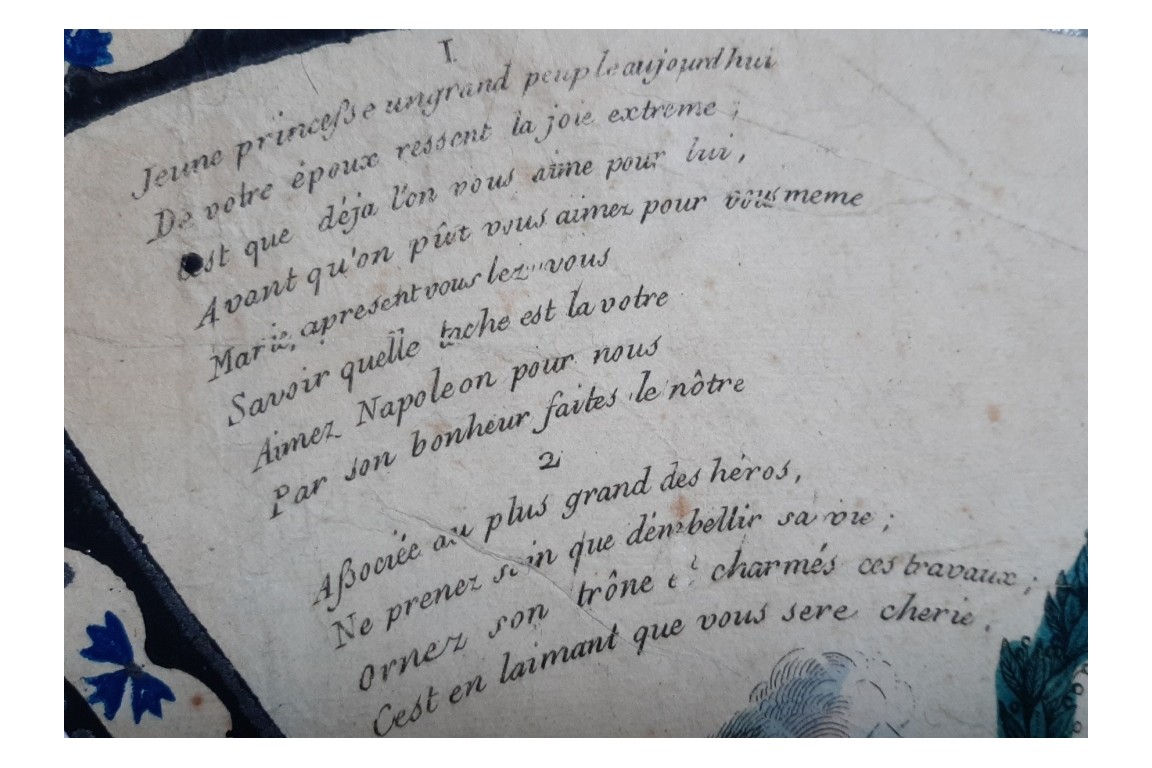 I
Jeune princeſse un grand peuple aujourd'hui
De votre époux ressent la joie extreme ;
C'est que déja l'on vous aime pour lui,
Avant qu'on pût vous aimez pour vous meme
Marie, apresent voulez-vous
Savoir quelle tache est la votre
Aimez Napoleon pour nous
Par son bonheur faites le nôtre
2
Aſsociée au plus grand des héros,
Ne prenez soin que d'embellir sa vie ;
ornez son trône et charmés ces travaux ;
C'est en laimant que vous sere cherie.